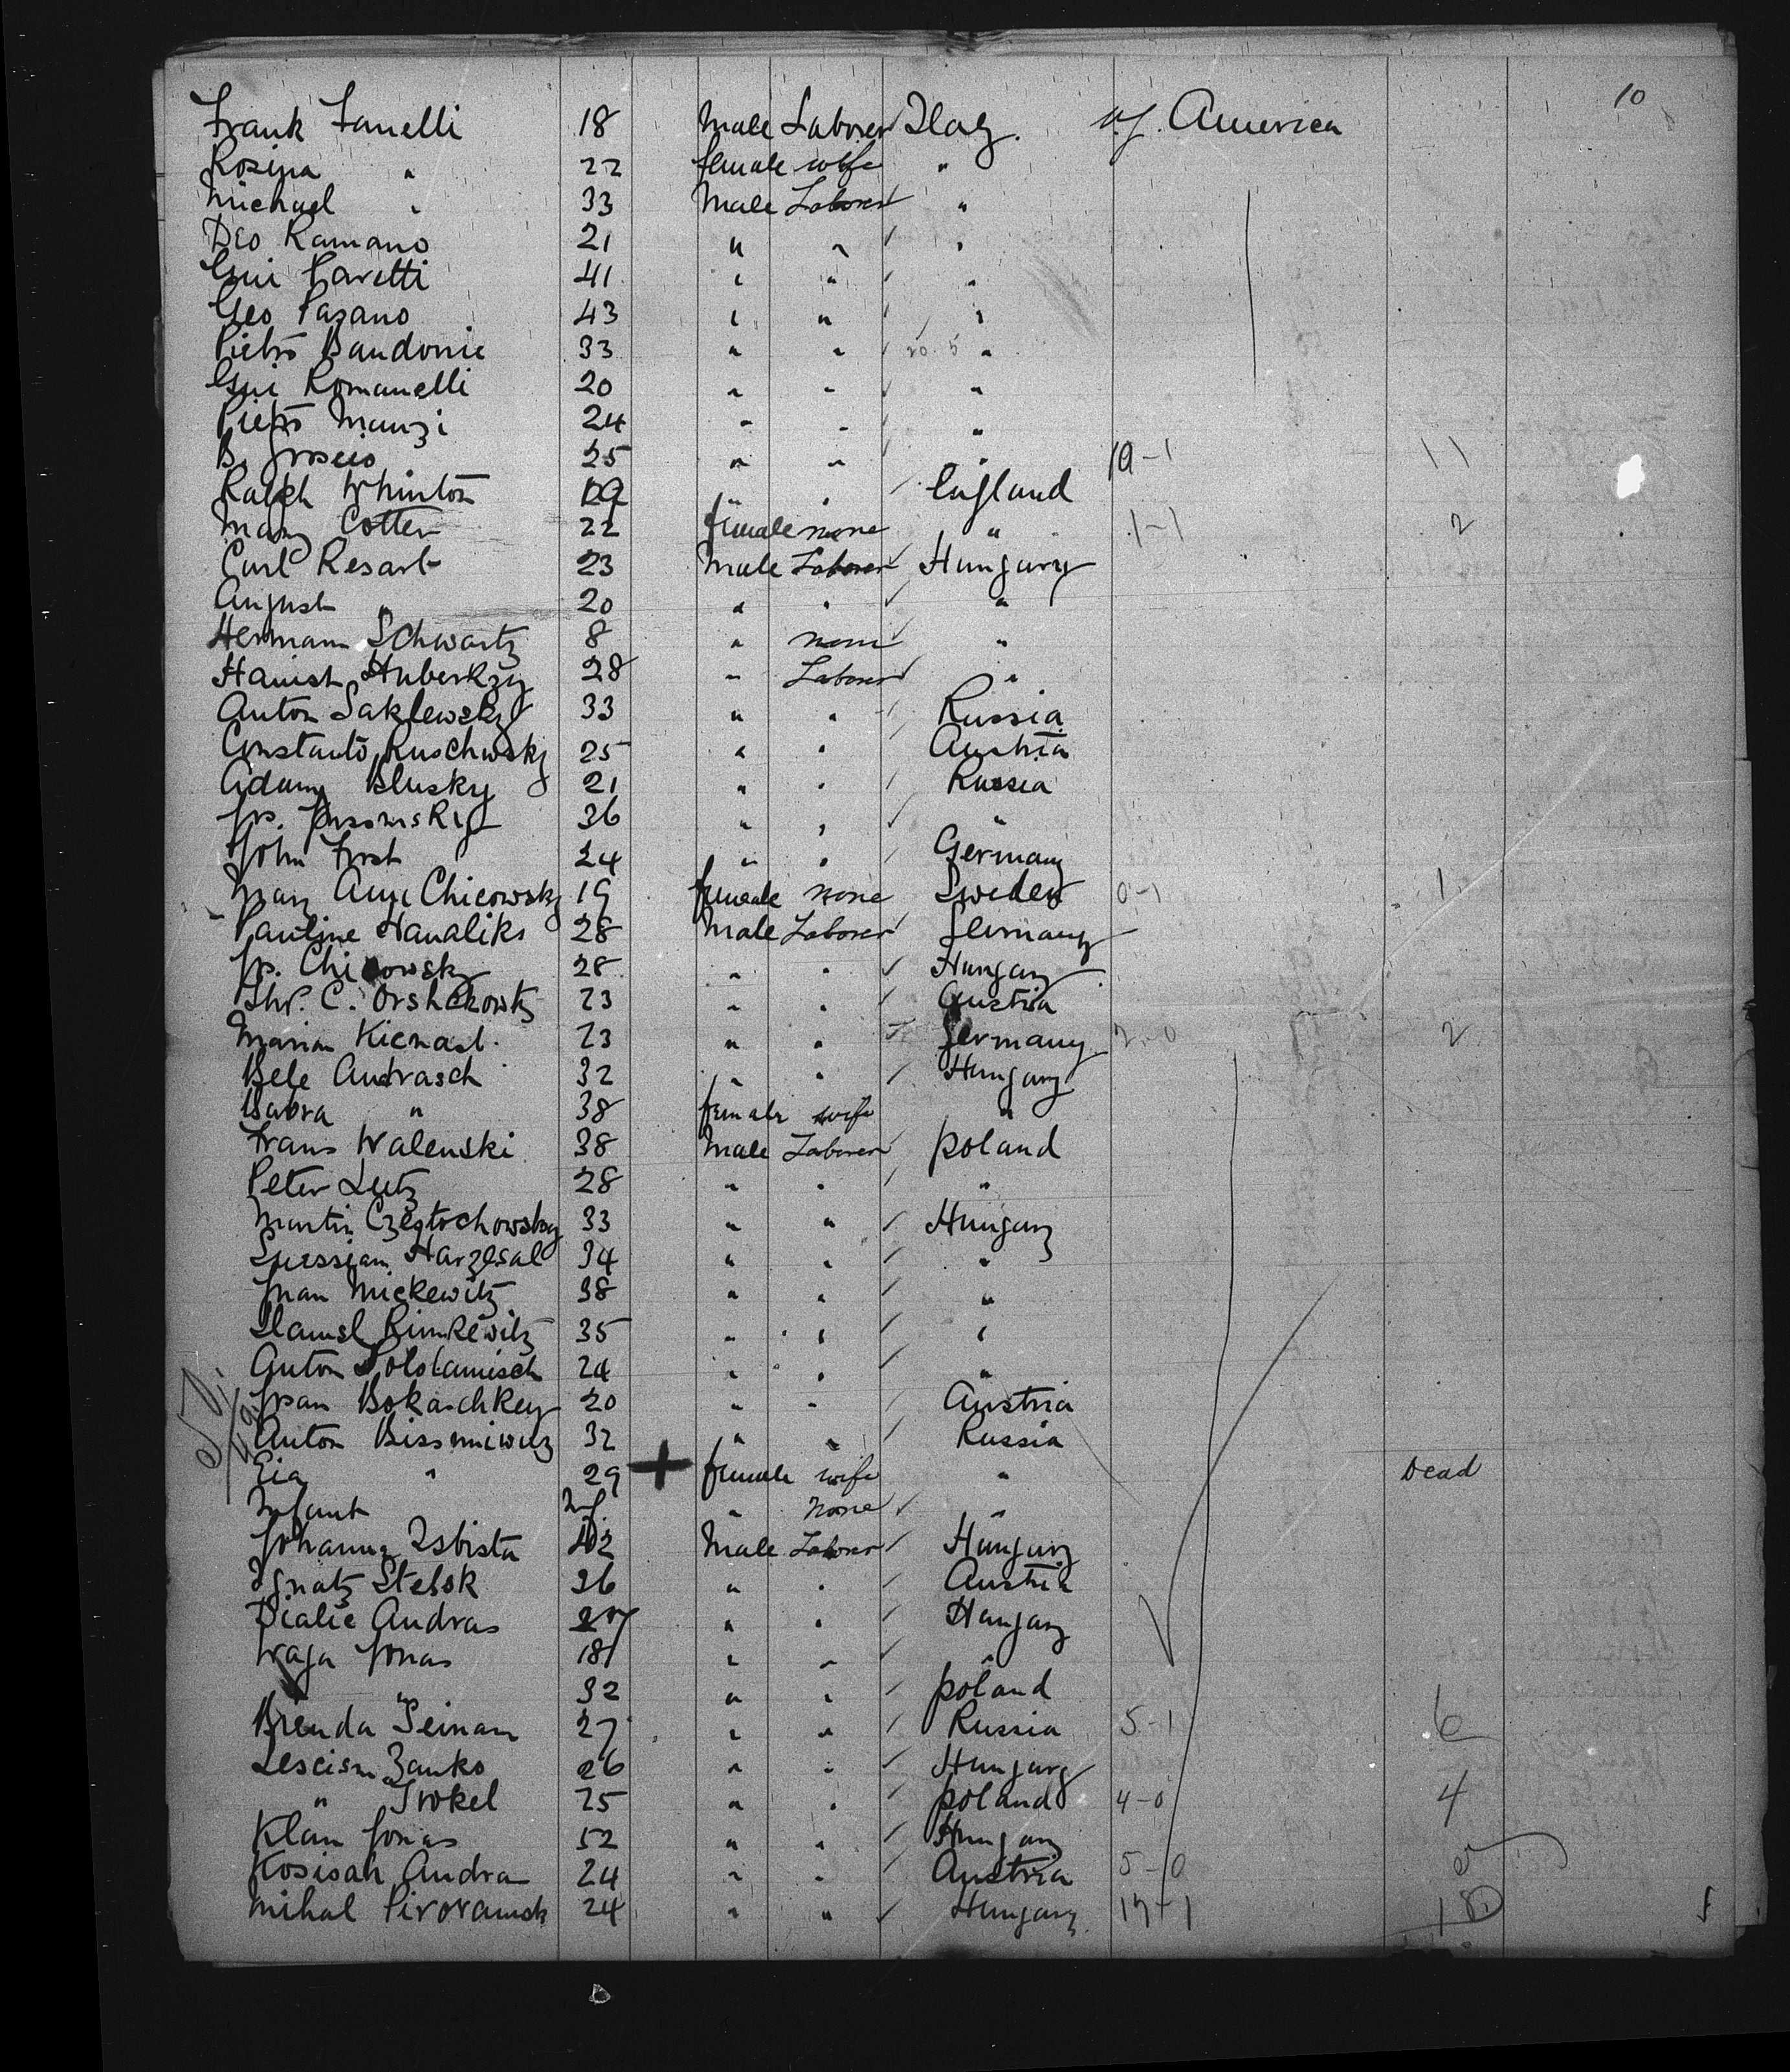 10
Frank Fanelli 18 Male Laborer Italy. U.S. America
Rosina " 22 female wife "
Michael " 33 Male Laborer "
Deo Ramano 21 " " "
Gui Paretti 41 " " "
Geo Pazano 43 " " "
Pietro Bandonie 33 " " 20 5 "
Gui Romanelli 20 " " "
Pietro Manzi 24 " " "
B. 25 " " " 10-1 11
Ralph Whinton 19 " " England
Mary Cotter 22 female none " 1-1 2
Carl Resart 23 Male Laborer Hungary
August " 20 " " "
Hermann Schwartz 8 " none "
Hanist Huberkzy 28 " Laborer "
Anton Saklewsky 33 " " Russia
Constanto Ruschwsky 25 " " Austria
Adam Blusky 21 " " Russia
Jos. 36 " " "
John Frost 24 " " Germany
Mary Ann Chicowsky 19 female none Sweden 0-1 1
Pauline Hanaliks 28 Male Laborer Germany
Jos. Chicowsky 28 " " Hungary
C. Orshekowtz 23 " " Austria
Marian Kienast. 23 " " Germany 2-0 2
Bele Andrasch 32 " " Hungary
Babra " 38 female wife "
Frans Walenski 38 Male Laborer Poland
Peter Lutz 28 " " "
Martin Czestochowsky 33 " " Hungary
Harzesal 34 " " "
Juan Mickewitz 38 " " "
Rimkewitz 35 " " "
Anton 24 " " "
Juan Bokaschkey 20 " " Austria
Anton Bissmiwitz 32 " " Russia
Eia " 29 + female wife " Dead
Infant Inf. " None "
Johanna Isbista 42 Male Laborer Hungary
Ignatz Stebok 36 " " Austria
Dialic Andras 27 " " Hungary
Waga Jonas 18 " " "
" " 32 " " Poland
Brenda Seinan 27 " " Russia 5-1 6
Lescism Zanko 26 " " Hungary
" Trokel 25 " " Poland 4-0 4
Klan Jonas 52 " " Hungary
Kosisah Andra 24 " " Austria 5-0
Mihal 24 " " Hungary 17-1 18